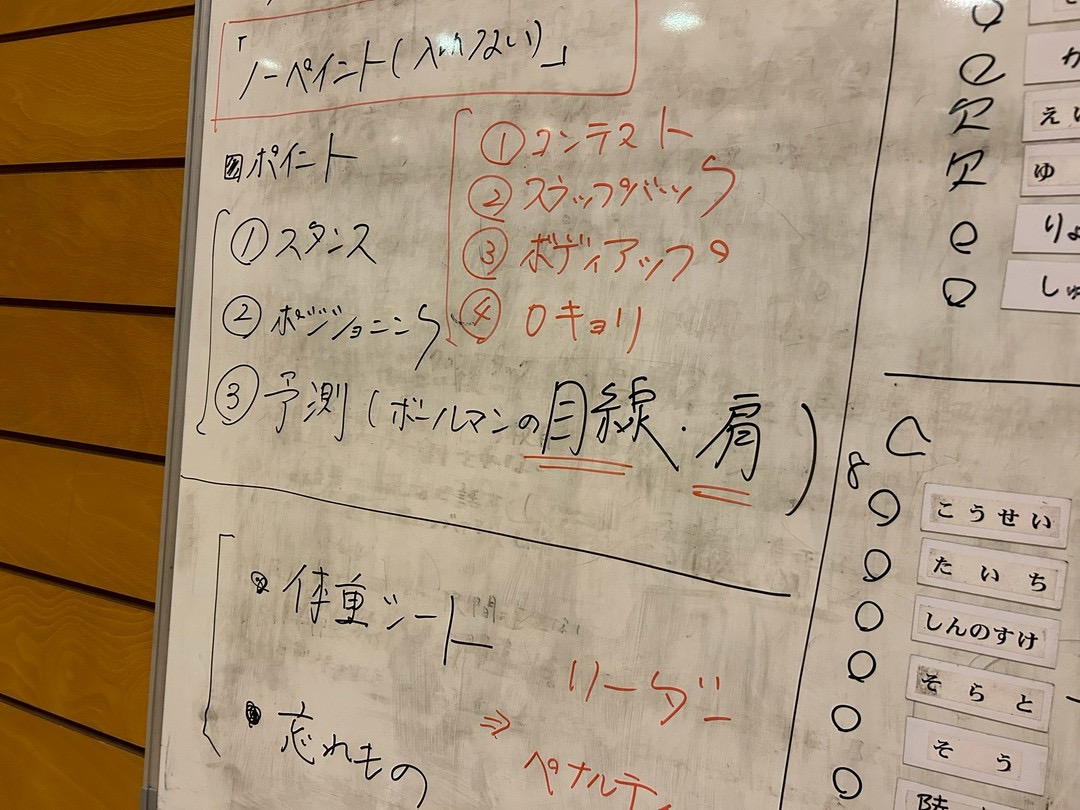 「ノーペイント(入れない)」
ポイント
①スタンス
②ポジショニング
③予測(ボールマンの目線・肩)
①コンテスト
②スラップバック
③ボディアップ
④0キョリ
・体重シート
・忘れもの
⇒
リーダー
ペナルティ
e
欠
欠
e
え
ゆ
りょ
しゅ
C
8
こうせい
たいち
しんのすけ
そらと
そう